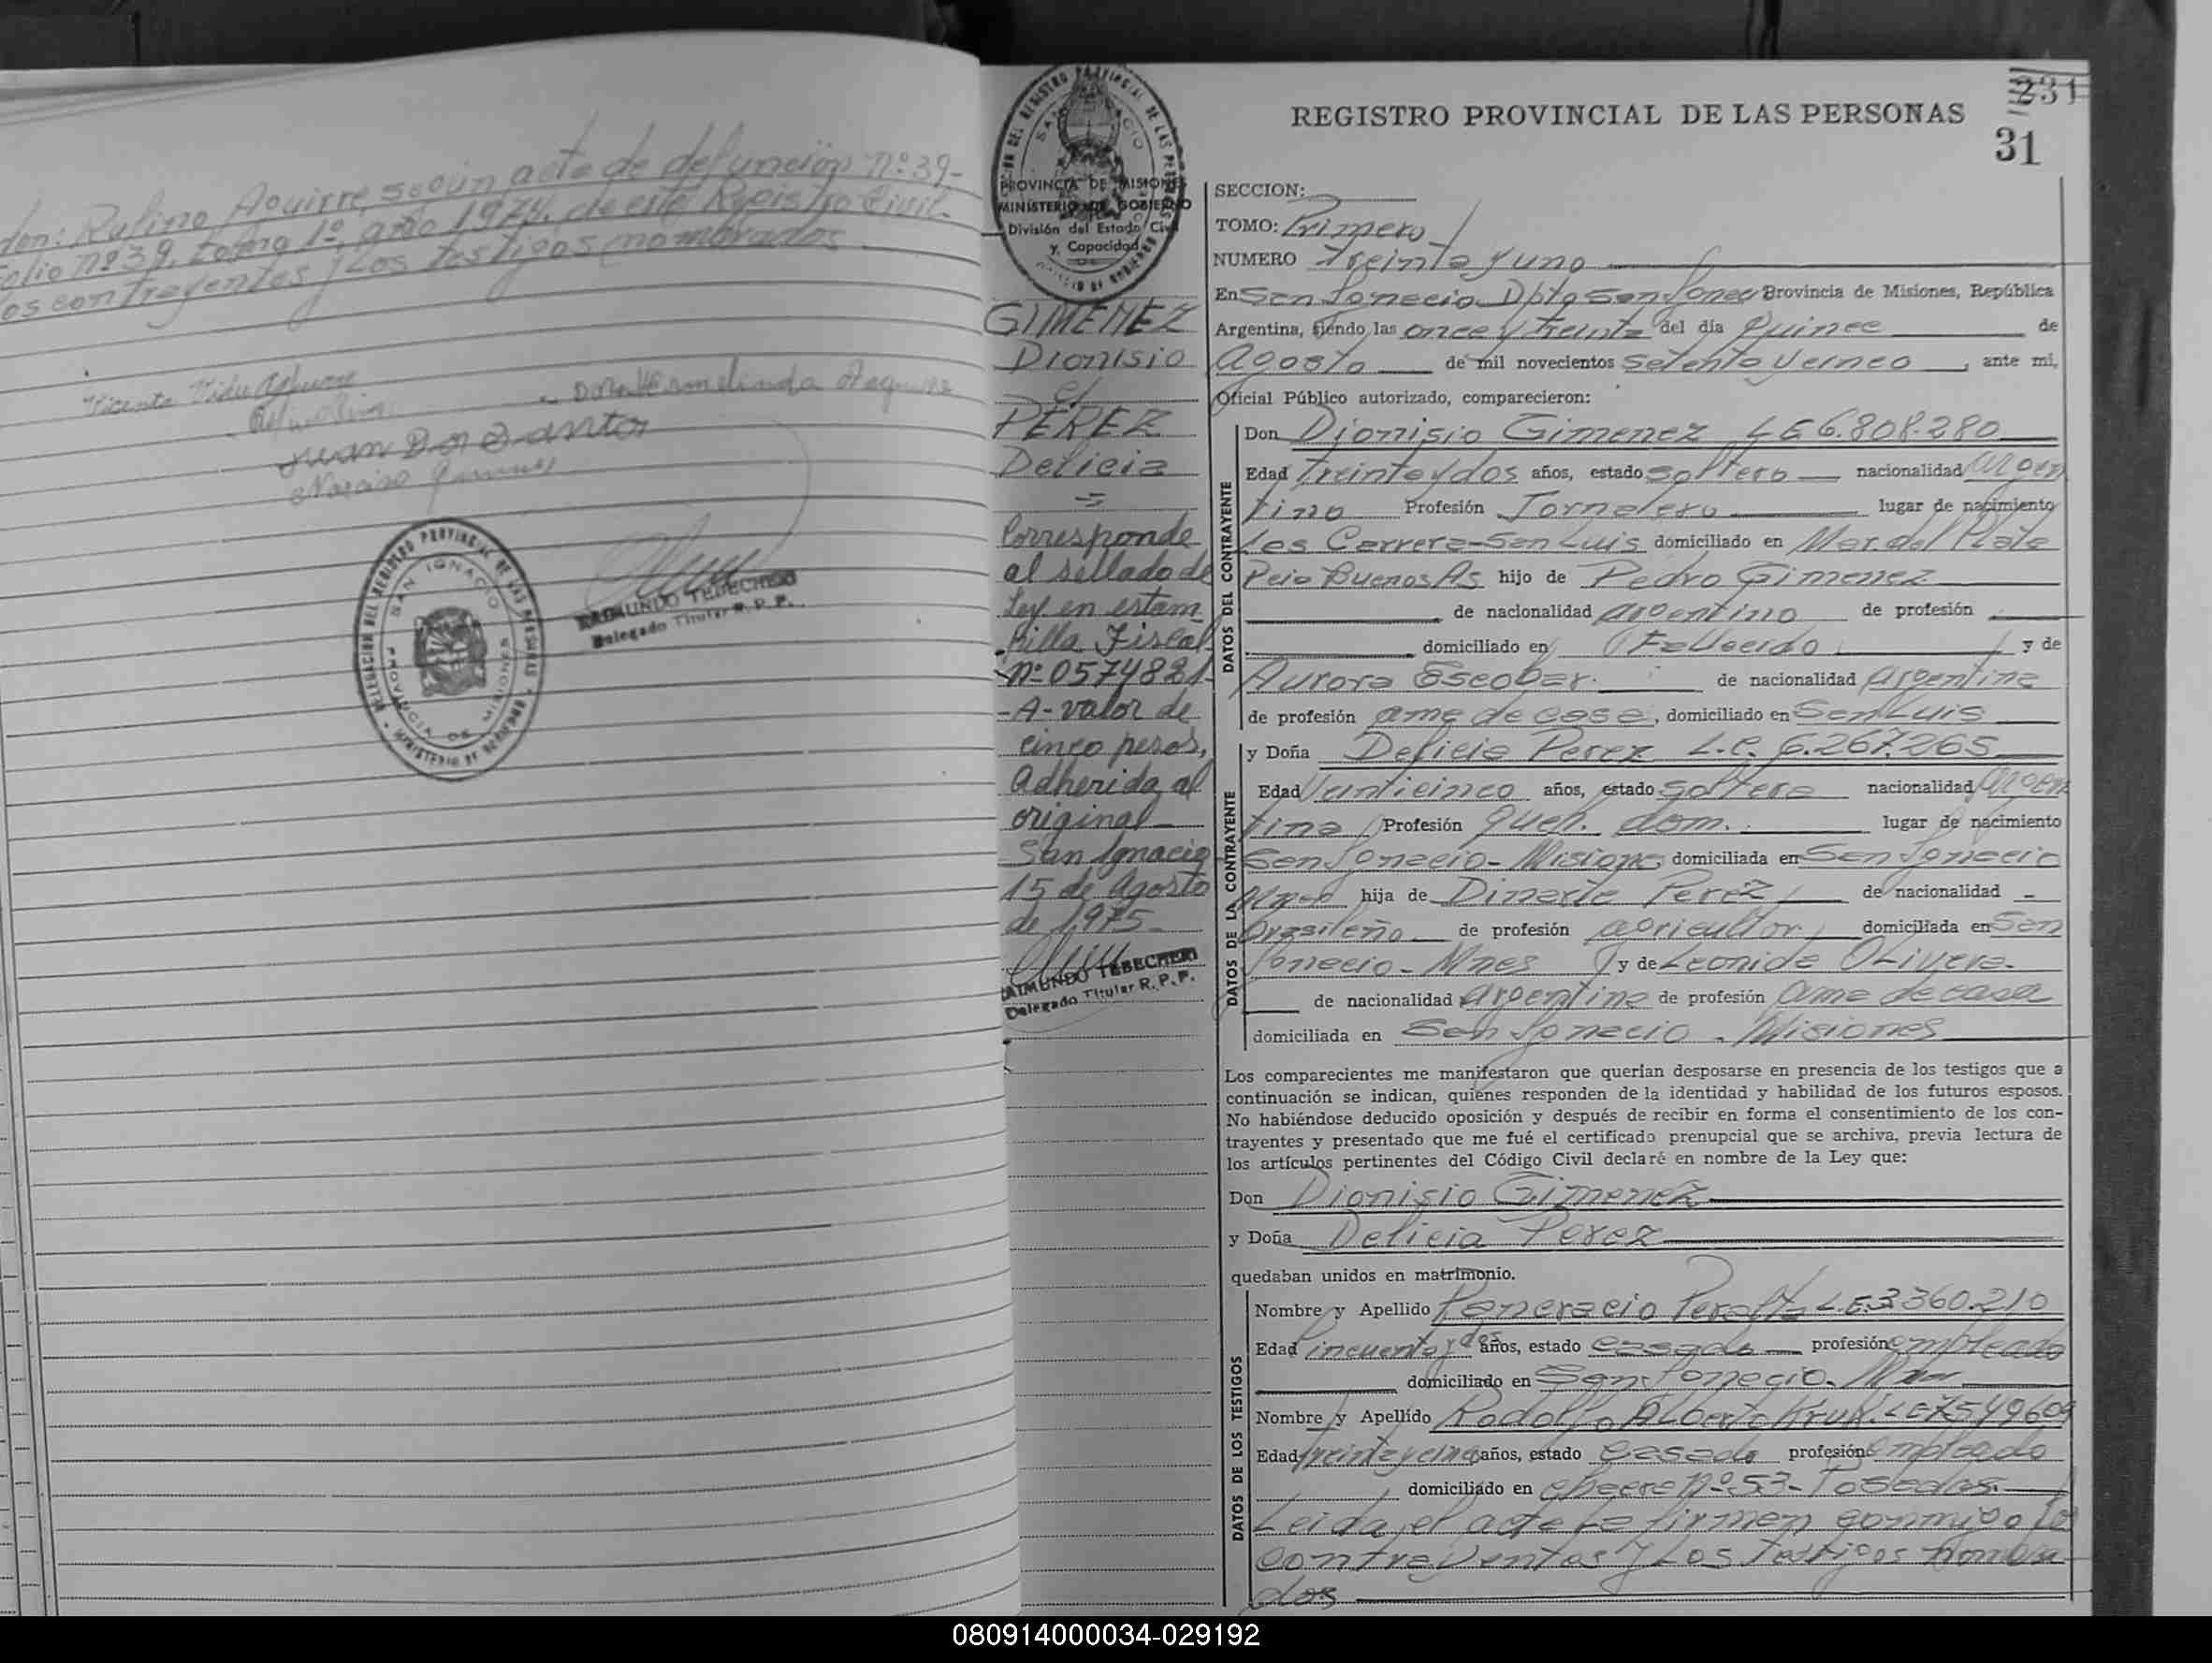 don: Rufino Aguirre, según acta de defunción nº: 39-
folio nº 39, tomo 1º, año 1974, de este Registro Civil.
los contrayentes y los testigos nombrados
Juan Dos Santos
DELEGACION DEL REGISTRO PROVINCIAL DE LAS PERSONAS
SAN IGNACIO
PROVINCIA DE MISIONES
MINISTERIO DE GOBIERNO
RAIMUNDO TEBECHERI
Delegado Titular R. P. P.
PROVINCIA DE MISIONES
MINISTERIO DE GOBIERNO
División del Estado Civil
y Capacidad
GIMENEZ
Dionisio
c/
PEREZ
Delicia
=
Corresponde
al sellado de
Ley en estam
pilla Fiscal
nº 0574881
-A- valor de
cinco pesos,
Adherida al
original
San Ignacio
15 de Agosto
de 1975-
RAIMUNDO TEBECHERI
Delegado Titular R. P. P.
231
REGISTRO PROVINCIAL DE LAS PERSONAS
31
SECCION:
TOMO: Primero
NUMERO Treinta y uno
En San Ignacio Dpto San Ignac Provincia de Misiones, República
Argentina, siendo las once y treinta del día Quince de
Agosto de mil novecientos setenta y cinco, ante mi,
Oficial Público autorizado, comparecieron:
DATOS DEL CONTRAYENTE
Don Dionisio Gimenez L E 6.808.280
Edad treinta y dos años, estado soltero nacionalidad argen
tino Profesión Jornalero lugar de nacimiento
Las Carrera-San Luis domiciliado en Mar del Plata
Pcia Buenos As hijo de Pedro Gimenez
de nacionalidad argentino de profesión
domiciliado en (Fallecido) y de
Aurora Escobar. de nacionalidad argentina
de profesión ama de casa, domiciliado en San Luis
DATOS DE LA CONTRAYENTE
y Doña Delicia Perez L.C. 6.267.265
Edad Veinticinco años, estado soltera nacionalidad argen
tina Profesión queh. dom. lugar de nacimiento
San Ignacio- Misiones, domiciliada en San Ignacio
hija de Dinarte Perez de nacionalidad -
brasileño de profesión agricultor domiciliada en San
Ignacio- Mnes y de Leonida Olivera-
de nacionalidad argentina de profesión ama de casa
domiciliada en San Ignacio. Misiones
Los comparecientes me manifestaron que querían desposarse en presencia de los testigos que a
continuación se indican, quienes responden de la identidad y habilidad de los futuros esposos.
No habiéndose deducido oposición y después de recibir en forma el consentimiento de los con-
trayentes y presentado que me fué el certificado prenupcial que se archiva, previa lectura de
los artículos pertinentes del Código Civil declaré en nombre de la Ley que:
Don Dionisio Gimenez
y Doña Delicia Perez
quedaban unidos en matrimonio.
DATOS DE LOS TESTIGOS
Nombre y Apellido Pancracio Peralta L.E.3360.210
Edad Cincuenta y dos años, estado casado profesión empleado
domiciliado en San Ignacio.
Nombre y Apellido Rodolfo Alberto Kruk. L E 7549609
Edad treinta y cinco años, estado casado profesión empleado
domiciliado en chacra Nº 53- Posadas.
Leida el acta la firman conmigo los
contrayentes y los testigos nombra
dos
080914000034-029192